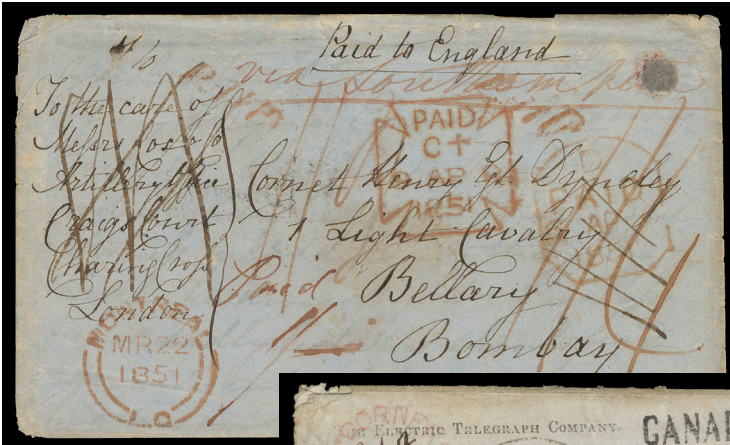 Paid to England
via Southampton
To the care of
Messrs Cox & Co
Artillery Office
Craigs Court
Charing Cross
London
PAID
C+
AP
1851
Cornet Henry Dyneley
1 Light Cavalry
Bellary
Bombay
Paid
PAID
AP
MONTREAL
MR 22
1851
L.C
ELECTRIC TELEGRAPH COMPANY.
CANA